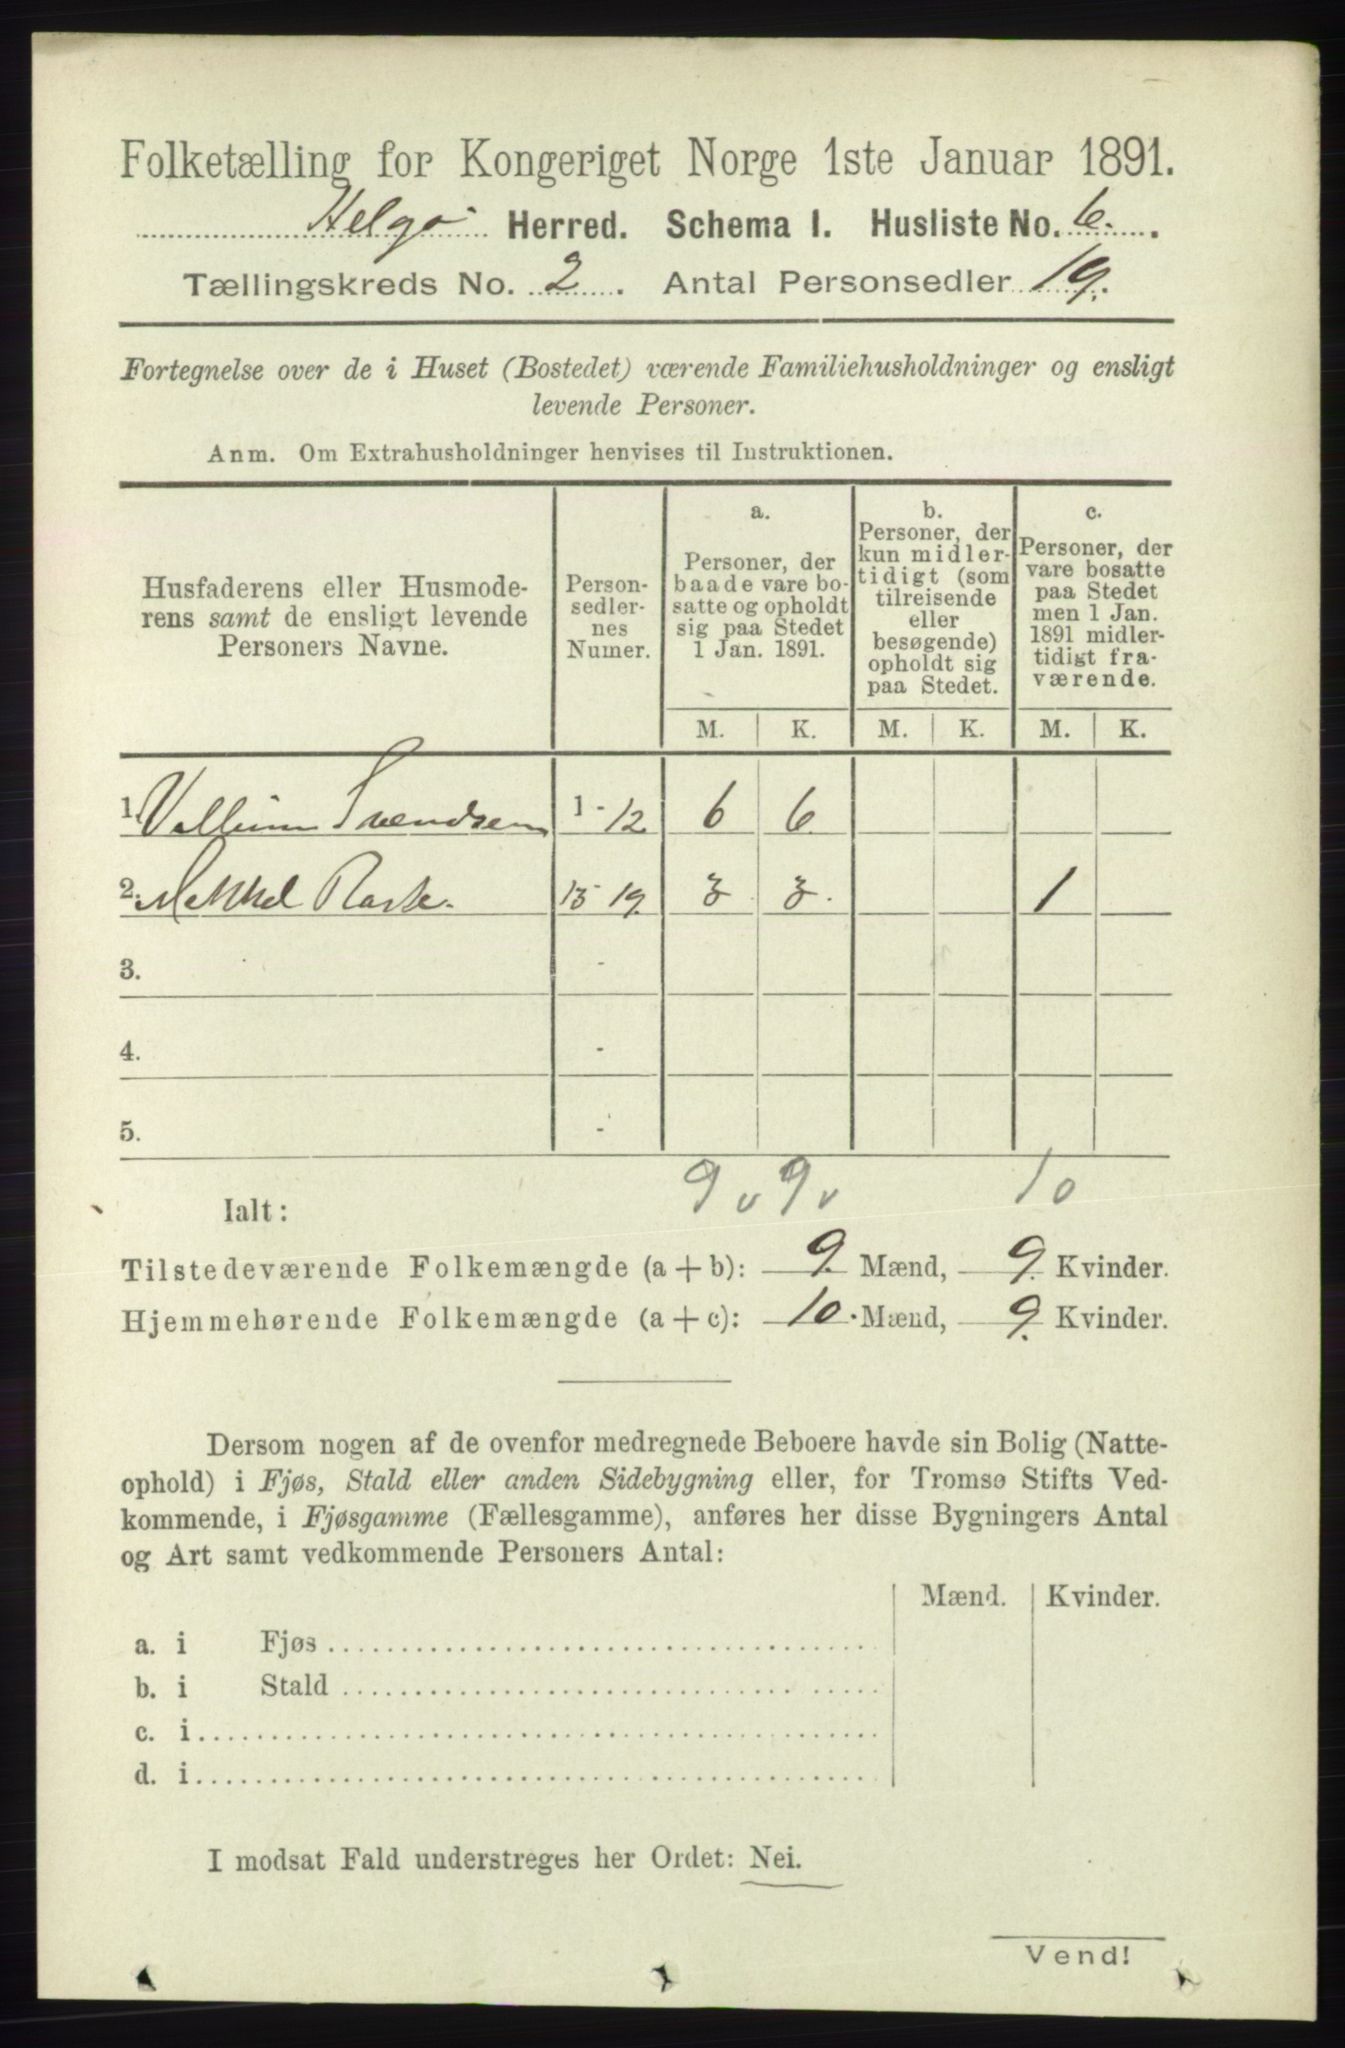 Folketælling for Kongeriget Norge 1ste Januar 1891.
Helgø Herred. Schema I. Husliste No. 6.
Tællingskreds No. 2. Antal Personsedler 19.
Fortegnelse over de i Huset (Bostedet) værende Familiehusholdninger og ensligt
levende Personer.
Anm. Om Extrahusholdninger henvises til Instruktionen.
Husfaderens eller Husmode-
rens samt de ensligt levende
Personers Navne.
Person-
sedler-
nes
Numer.
a.
Personer, der
baade vare bo-
satte og opholdt
sig paa Stedet
1 Jan. 1891.
b.
Personer, der
kun midler-
tidigt (som
tilreisende
eller
besøgende)
opholdt sig
paa Stedet.
c.
Personer, der
vare bosatte
paa Stedet
men 1 Jan.
1891 midler-
tidigt fra-
værende.
M. K. M. K. M. K.
1. Svendsen 1 - 12 6 6
2. Mekkel 13 - 19. 3 3. 1
3. -
4. -
5. -
Ialt: 9 v 9 v 10
Tilstedeværende Folkemængde (a + b): 9. Mænd, 9. Kvinder.
Hjemmehørende Folkemængde (a + c): 10. Mænd, 9. Kvinder.
Dersom nogen af de ovenfor medregnede Beboere havde sin Bolig (Natte-
ophold) i Fjøs, Stald eller anden Sidebygning eller, for Tromsø Stifts Ved-
kommende, i Fjøsgamme (Fællesgamme), anføres her disse Bygningers Antal
og Art samt vedkommende Personers Antal:
Mænd. Kvinder.
a. i Fjøs
b. i Stald
c. i
d. i
I modsat Fald understreges her Ordet: Nei.
Vend!